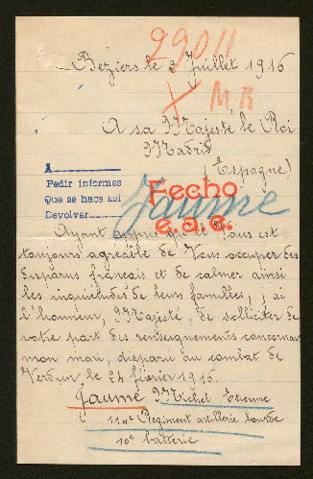 29011
Beziers le 3 Juillet 1916
M R
A sa Majesté le Roi
Madrid
(Espagne)
A
Pedir informes
Que se hace aui
Devolver
Fecho
e.a.c.
Jaume
Ayant appris que il Vous est
toujours agréable de Vous occuper des
disparus francais et de calmer ainsi
les inquiétudes de leurs familles, j'ai
l'honneur, Majesté, de solliciter de
votre part des renseignements concernant
mon mari, disparu au combat de
Verdun le 24 février 1916.
Jaume Michel Etienne
114e Regiment artillerie lourde
10e batterie